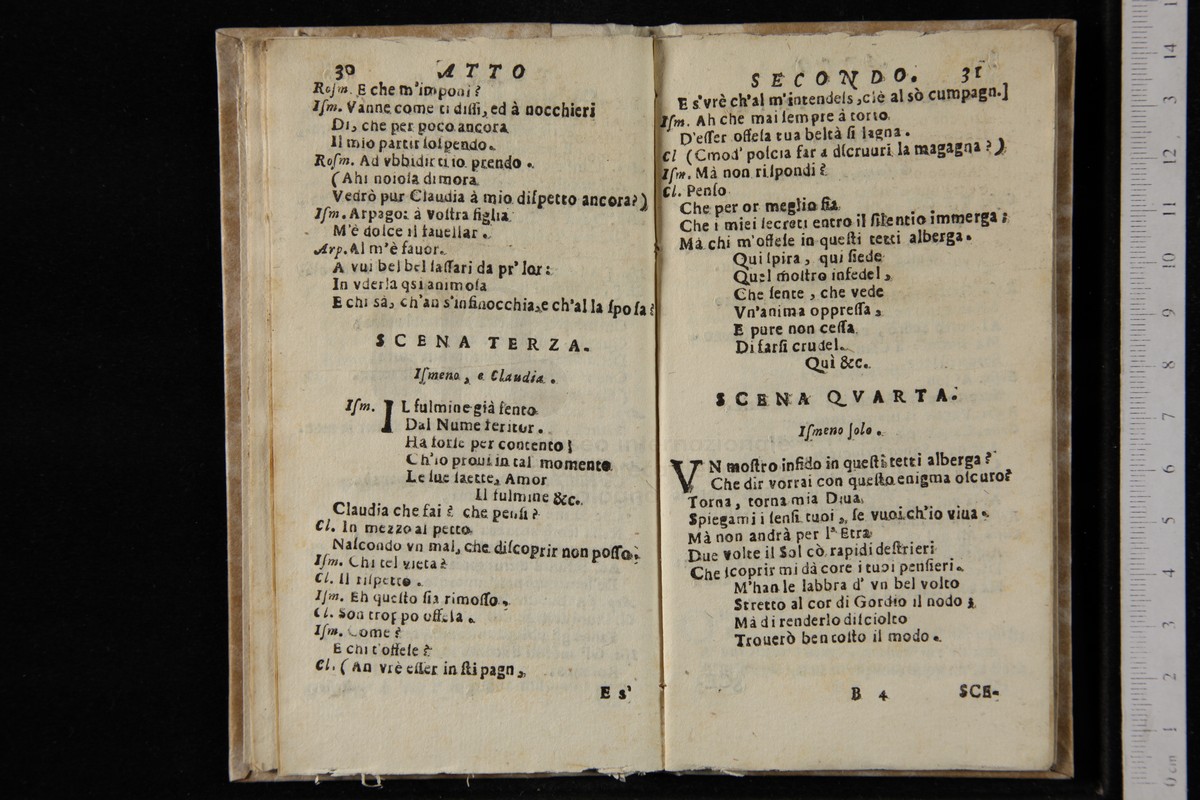 30 ATTO
Roſm. E che m'imponi?
Iſm. Vanne come ti diſſi, ed à nocchieri
Di, che per poco ancora
Il mio partir ſoſpendo.
Roſm. Ad vbbidirti io prendo.
(Ahi noioſa dimora
Vedrò pur Claudia à mio diſpetto ancora?)
Iſm. Arpago: à voſtra figlia
M'è dolce il fauellar.
Arp. Al m'è fauor.
A vui bel bel laſſari da pr' lor:
In vderla qsi animoſa
E chi sà, ch'an s'infinocchia, e ch'al la ſpoſa?
SCENA TERZA.
Iſmeno, e Claudia.
Iſm. IL fulmine già ſento
Dal Nume feritor.
Ha forſe per contento!
Ch'io proui in tal momento
Le ſue ſaette, Amor
Il fulmine &c.
Claudia che fai? che penſi?
Cl. In mezzo al petto
Naſcondo vn mal, che diſcoprir non poſſo.
Iſm. Chi tel vieta?
Cl. Il riſpetto.
Iſm. Eh queſto ſia rimoſſo.
Cl. Son troppo offeſa.
Iſm. Come?
E chi t'offeſe?
Cl. (An vrè eſſer in ſti pagn,
E s'
SECONDO. 31
E s'vrè ch'al m'intendeſs, ciè al sò cumpagn.]
Iſm. Ah che mai ſempre à torto
D'eſſer offeſa tua beltà ſi lagna.
Cl (Cmod' poſcia far a dſcruuri la magagna?)
Iſm. Mà non riſpondi?
Cl. Penſo
Che per or meglio ſia
Che i miei ſecreti entro il ſilentio immerga;
Mà chi m'offeſe in queſti tetti alberga.
Qui ſpira, qui ſiede
Quel moſtro infedel,
Che ſente, che vede
Vn'anima oppreſſa,
E pure non ceſſa
Di farſi crudel.
Quì &c.
SCENA QVARTA.
Iſmeno ſolo.
VN moſtro infido in queſti tetti alberga?
Che dir vorrai con queſto enigma oſcuro?
Torna, torna mia Diua,
Spiegami i ſenſi tuoi, ſe vuoi ch'io viua.
Mà non andrà per l'Etra
Due volte il Sol cò rapidi deſtrieri
Che ſcoprir mi dà core i tuoi penſieri.
M'han le labbra d' vn bel volto
Stretto al cor di Gordio il nodo;
Mà di renderlo diſciolto
Trouerò ben toſto il modo.
B 4 SCE-